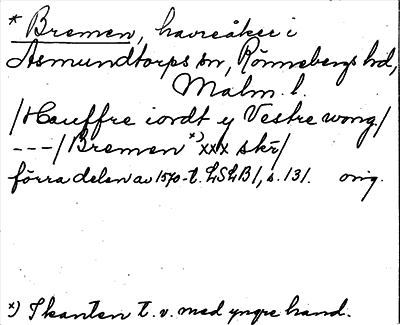 * Bremen, havreåker i
Asmundtorps sn, Rönnebergs hd,
Malm. l.
/Hauffre iordt y Vestre wong/
---/Bremen *) xxx skr/
förra delen av 1570-t. LSLB 1, s. 131. orig.
*) I kanten t. v. med yngre hand.